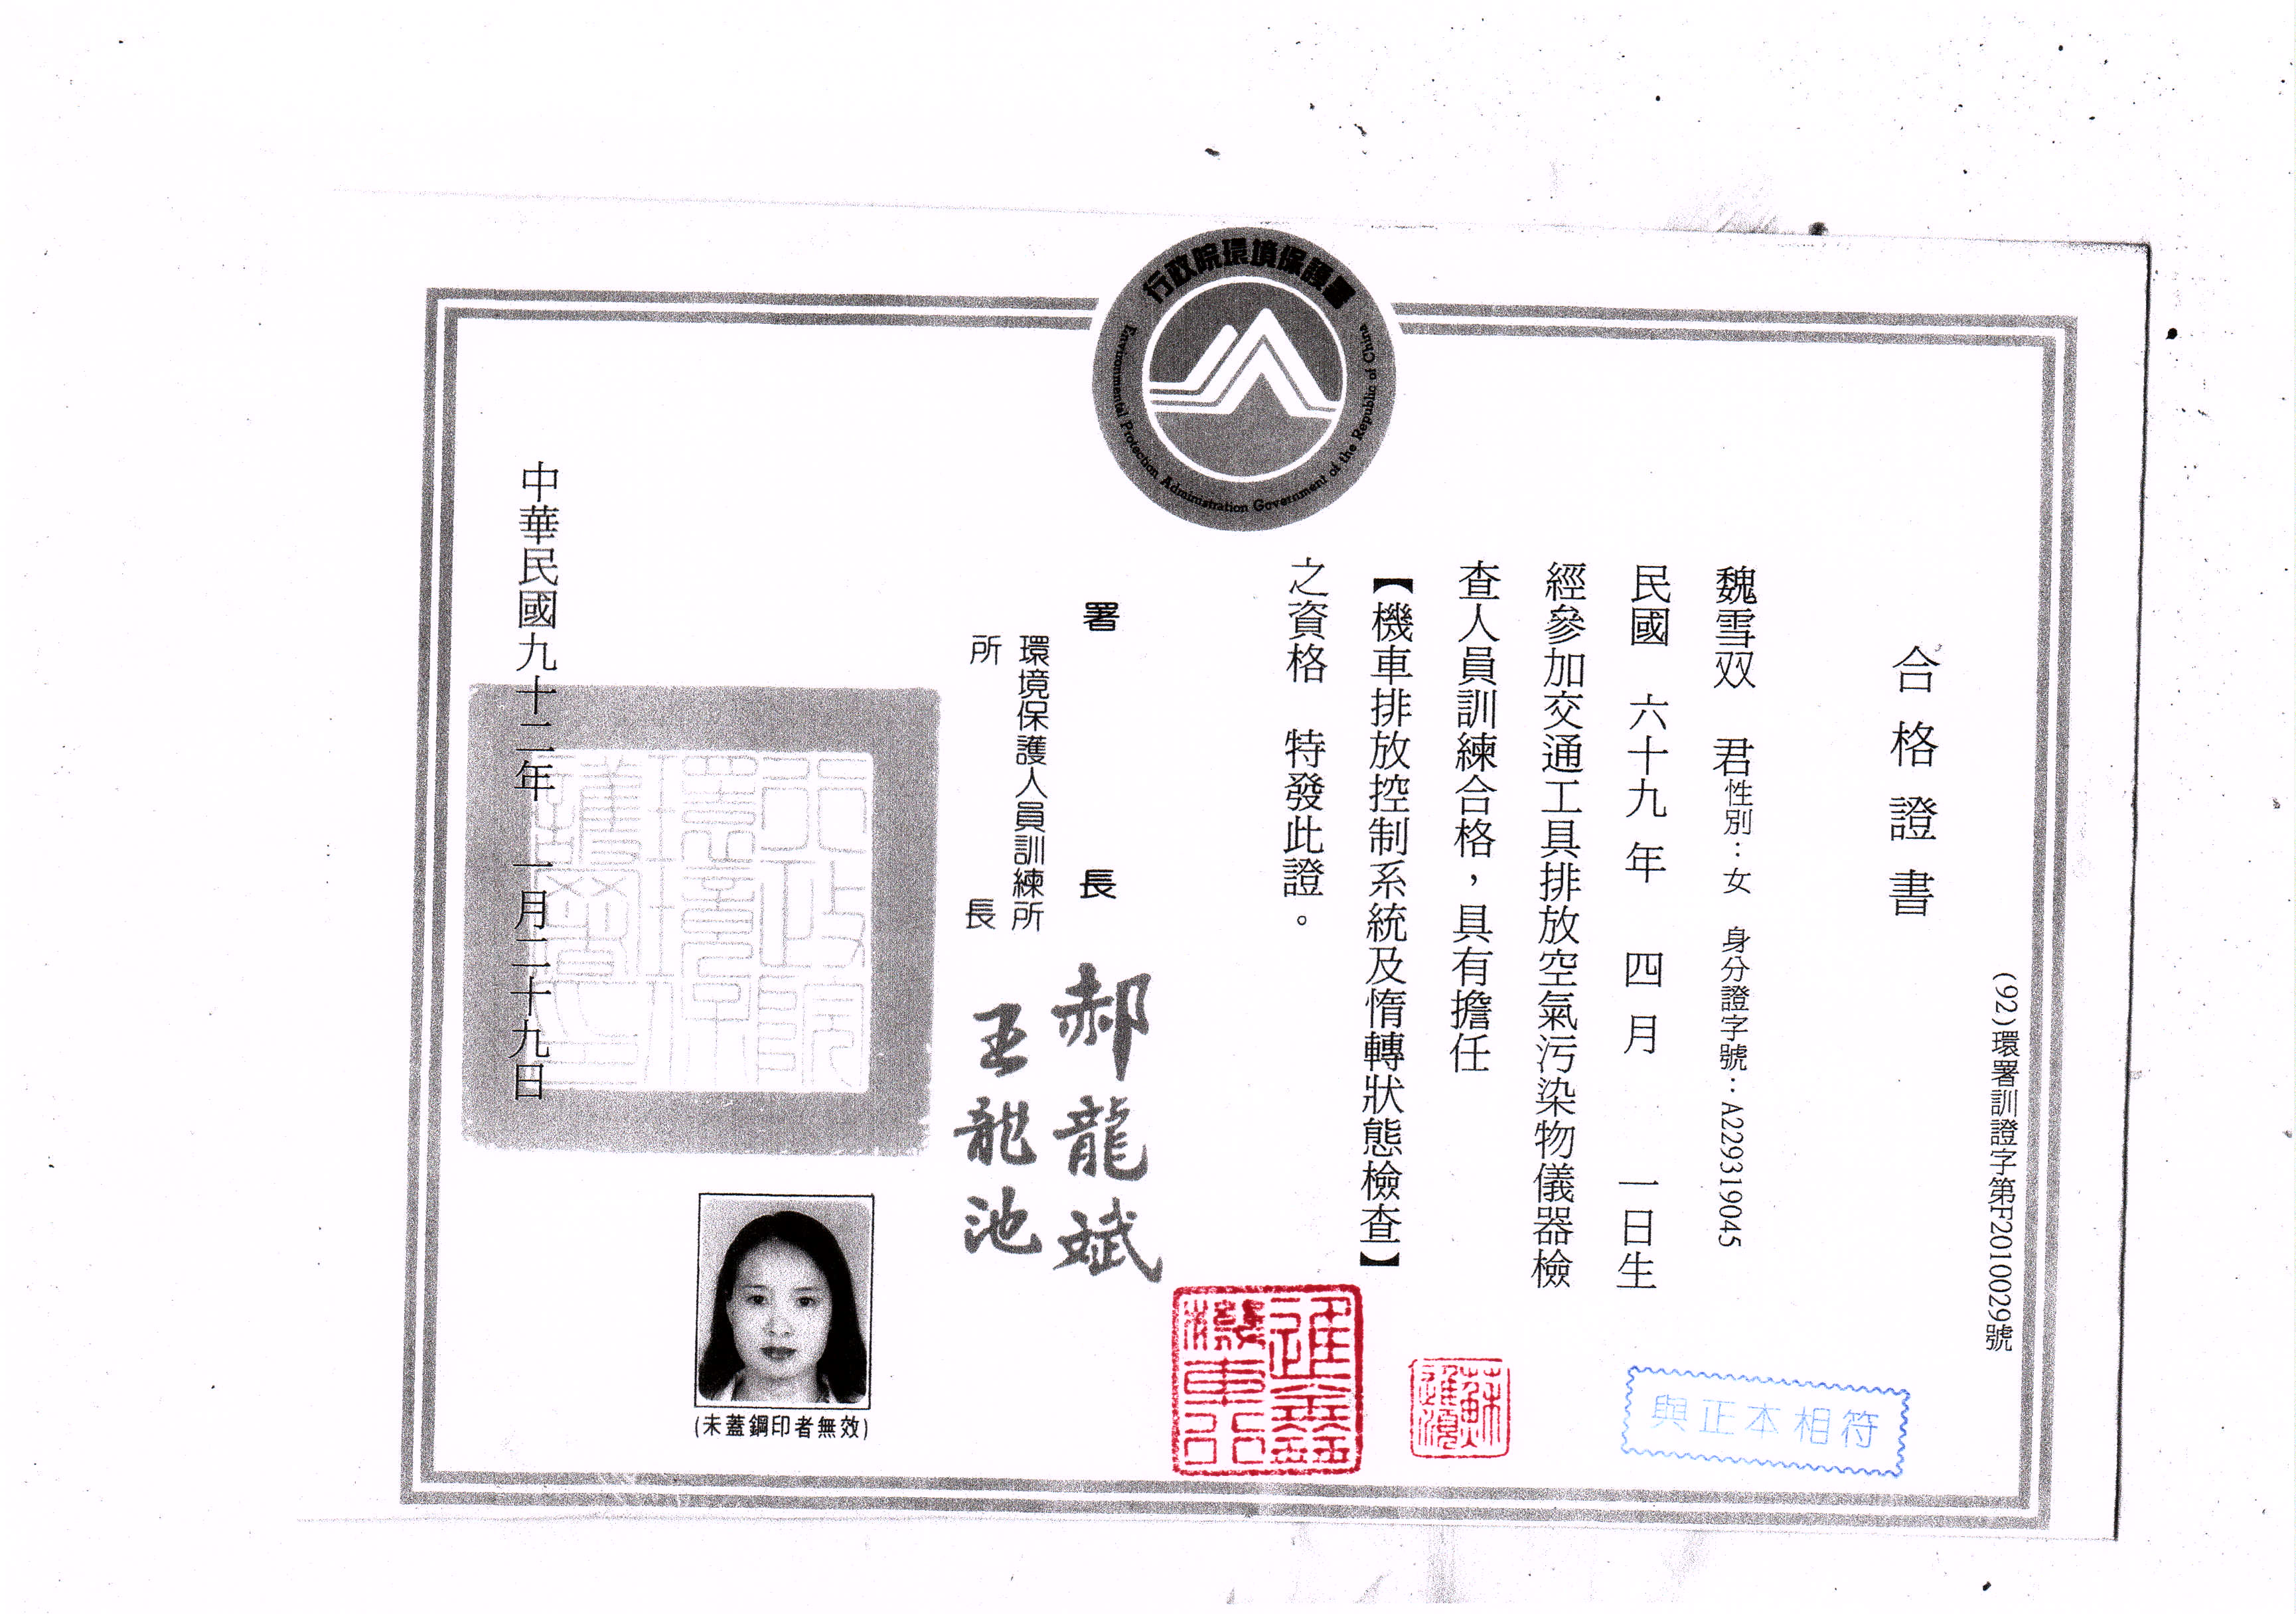 行政院環境保護署
Environmental Protection Administration Government of the Republic of China
(92)環署訓證字第F2010029號
合格證書
魏雪双 君性別：女 身分證字號：A229319045
民國 六十九 年 四 月 一日生
經參加交通工具排放空氣污染物儀器檢
查人員訓練合格，具有擔任
【機車排放控制系統及惰轉狀態檢查】
之資格 特發此證。
署 長 郝龍斌
環境保護人員訓練所
所 長 王龍池
行政院環境保護署印
中華民國九十二年 一月二十九日
(未蓋鋼印者無效)
進鑫機車行
與正本相符